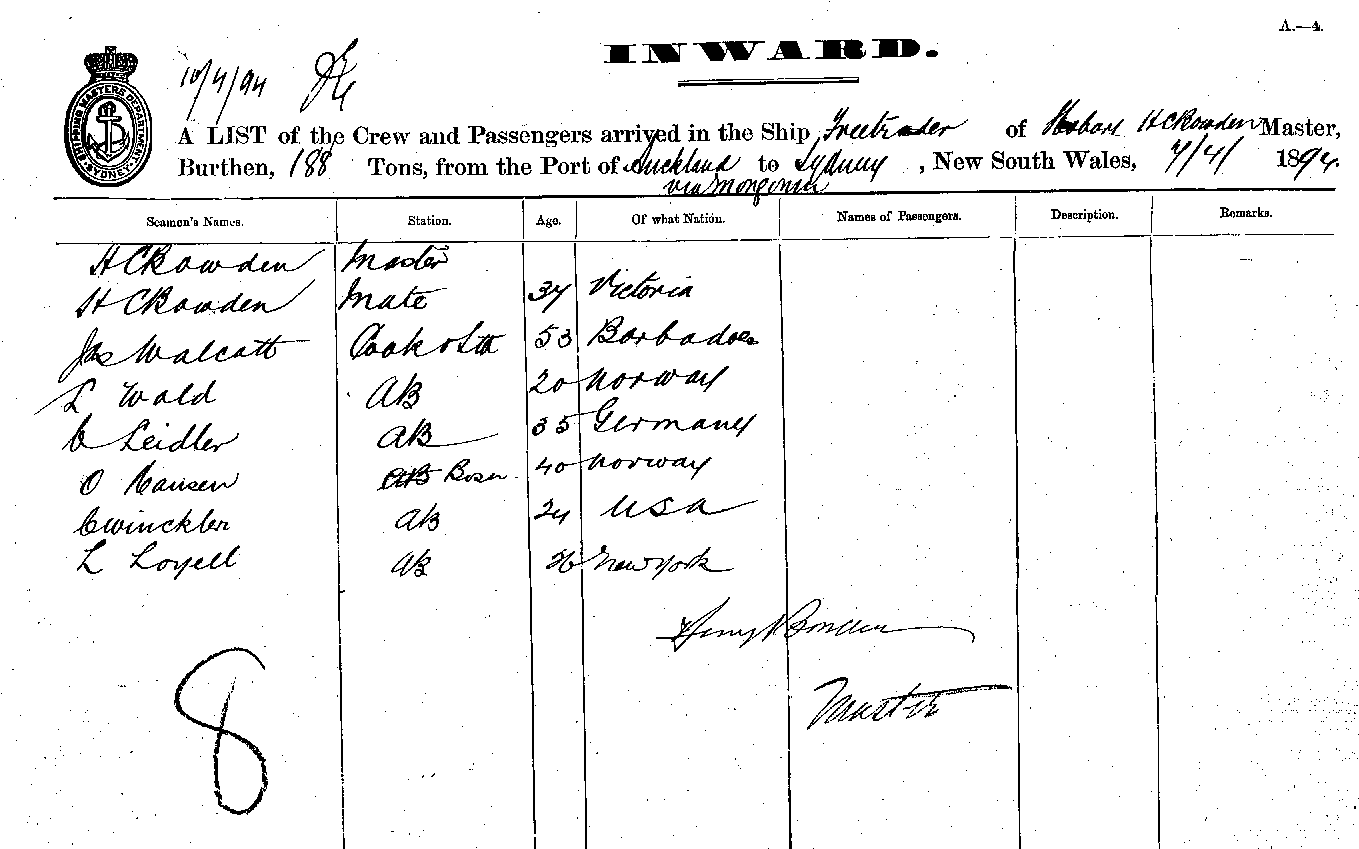 A.—4.
INWARD.
10/4/94
SHIPPING MASTERS DEPARTMENT SYDNEY
A LIST of the Crew and Passengers arrived in the Ship Freetrader of Hobart H C Rowden Master,
Burthen, 188 Tons, from the Port of Auckland to Sydney, New South Wales, 7/4/ 1894.
via Mongonui
Seamen's Names. Station. Age. Of what Nation. Names of Passengers. Description. Remarks.
H C Rowden Master
H C Rowden Mate 37 Victoria
Jas Walcott Cook & Std 53 Barbadoes
L Wald AB 20 Norway
C Leidler AB 35 Germany
O Hansen AB Bosn 40 Norway
C Winckler AB 24 USA
L Loyell AB 26 New York
Henry
Master
8